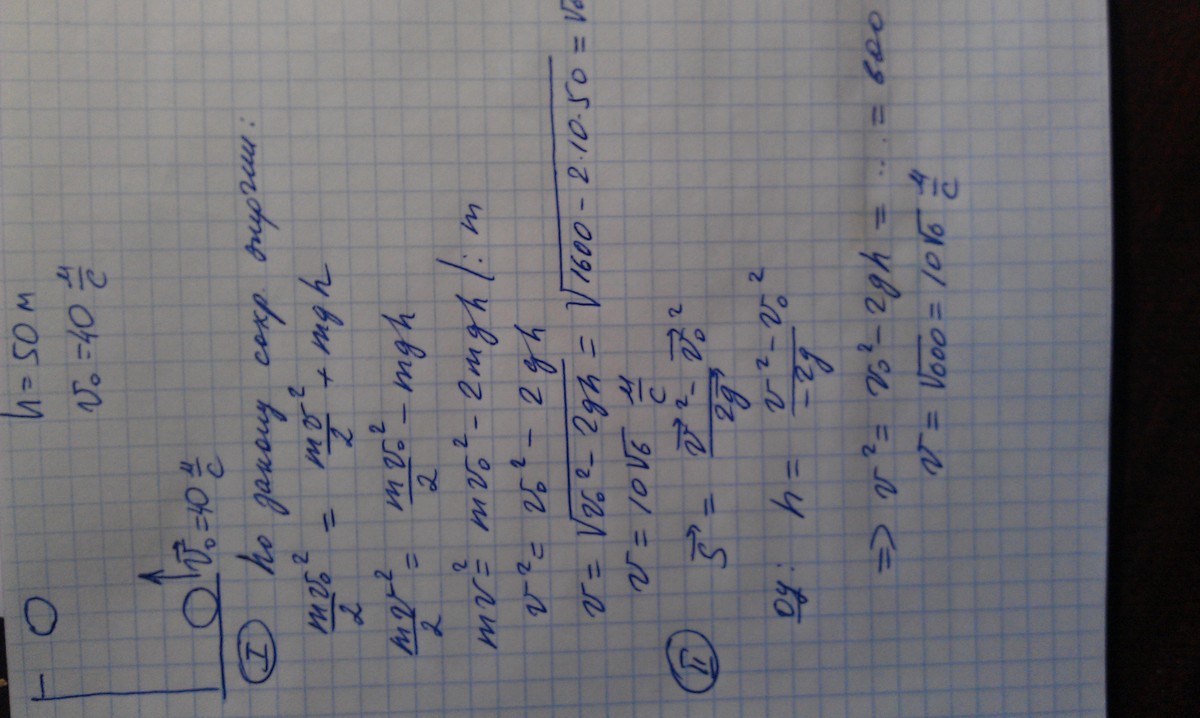 h = 50 м
v₀ = 40 м/с
v⃗₀ = 40 м/с
I По закону сохр. энергии:
mv₀²/2 = mv²/2 + mgh
mv²/2 = mv₀²/2 - mgh
mv² = mv₀² - 2mgh /: m
v² = v₀² - 2gh
v = √(v₀² - 2gh) = √(1600 - 2·10·50) =
v = 10√6 м/с
II S⃗ = (v⃗² - v⃗₀²)/2g⃗
oy: h = (v² - v₀²)/-2g
=> v² = v₀² - 2gh = ... = 600
v = √600 = 10√6 м/с